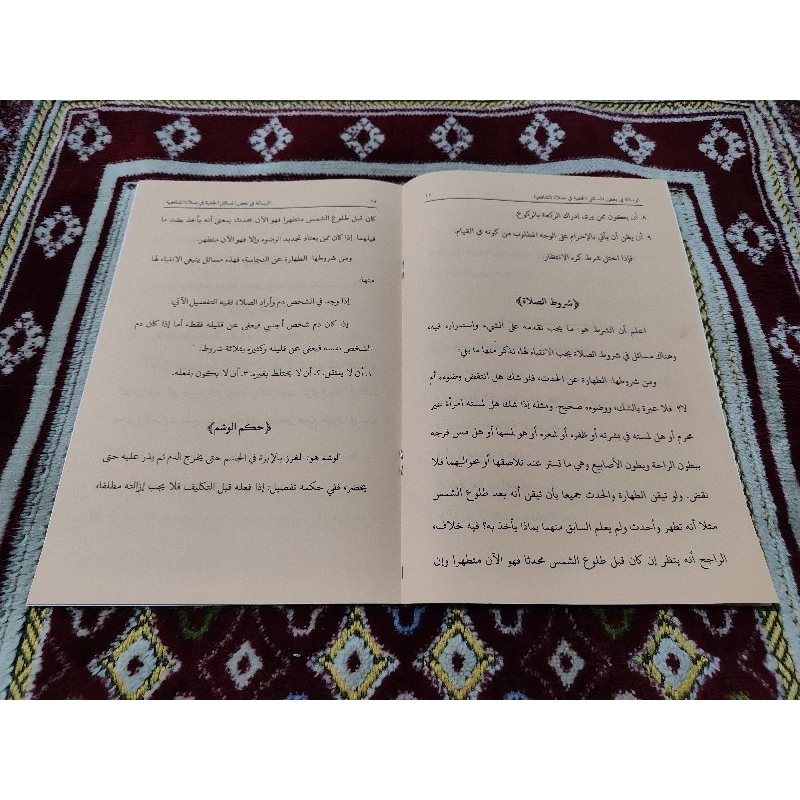 الرسالة في بعض المسائل الخفية في صلاة الشافعية
٨. أن يكون ممن يرى إدراك الركعة بالركوع.
٩. أن يظن أن يأتي بالإحرام على الوجه المطلوب من كونه في القيام.
فإذا اختل شرط كره الانتظار.
﴿شروط الصلاة﴾
اعلم أن الشرط هو: ما يجب تقدمه على الشيء واستمراره فيه،
وهناك مسائل في شروط الصلاة يجب الانتباه لها، نذكر منها ما يلي:
ومن شروطها: الطهارة عن الحدث، فلو شك هل انتقض وضوءه أم
لا؟ فلا عبرة بالشك، ووضوءه صحيح. ومثله إذا شك هل لمسته امرأة غير
محرم أو هل لمسته في بشرته أو ظفره أو شعره أو هو لمسها أو هل مس فرجه
ببطون الراحة وبطون الأصابع وهي ما تستر عند تلاصقها أو بحواليهما فلا
نقض. ولو تيقن الطهارة والحدث جميعا بأن تيقن أنه بعد طلوع الشمس
مثلا أنه تطهر وأحدث ولم يعلم السابق منهما بماذا يأخذ به؟ فيه خلاف،
الراجح أنه ينظر إن كان قبل طلوع الشمس محدثا فهو الآن متطهرا وإن
الرسالة في بعض المسائل الخفية في صلاة الشافعية
كان قبل طلوع الشمس متطهرا فهو الآن محدث بمعنى أنه يأخذ بضد ما
قبلهما إذا كان ممن يعتاد تجديد الوضوء وإلا فهو الآن متطهر.
ومن شروطها: الطهارة عن النجاسة، فهذه مسائل ينبغي الانتباه لها
منها:
إذا وجد في الشخص دم وأراد الصلاة ففيه التفصيل الآتي:
إذا كان دم شخص أجنبي فيعفى عن قليله فقط، أما إذا كان دم
الشخص نفسه فيعفى عن قليله وكثيره بثلاثة شروط:
١. أن لا ينتقل. ٢. أن لا يختلط بغيره. ٣. أن لا يكون بفعله.
﴿حكم الوشم﴾
الوشم هو: الغرز بالإبرة في الجسم حتى يخرج الدم ثم يذر عليه حتى
يخضر، ففي حكمه تفصيل: إذا فعله قبل التكليف فلا يجب إزالته مطلقا،